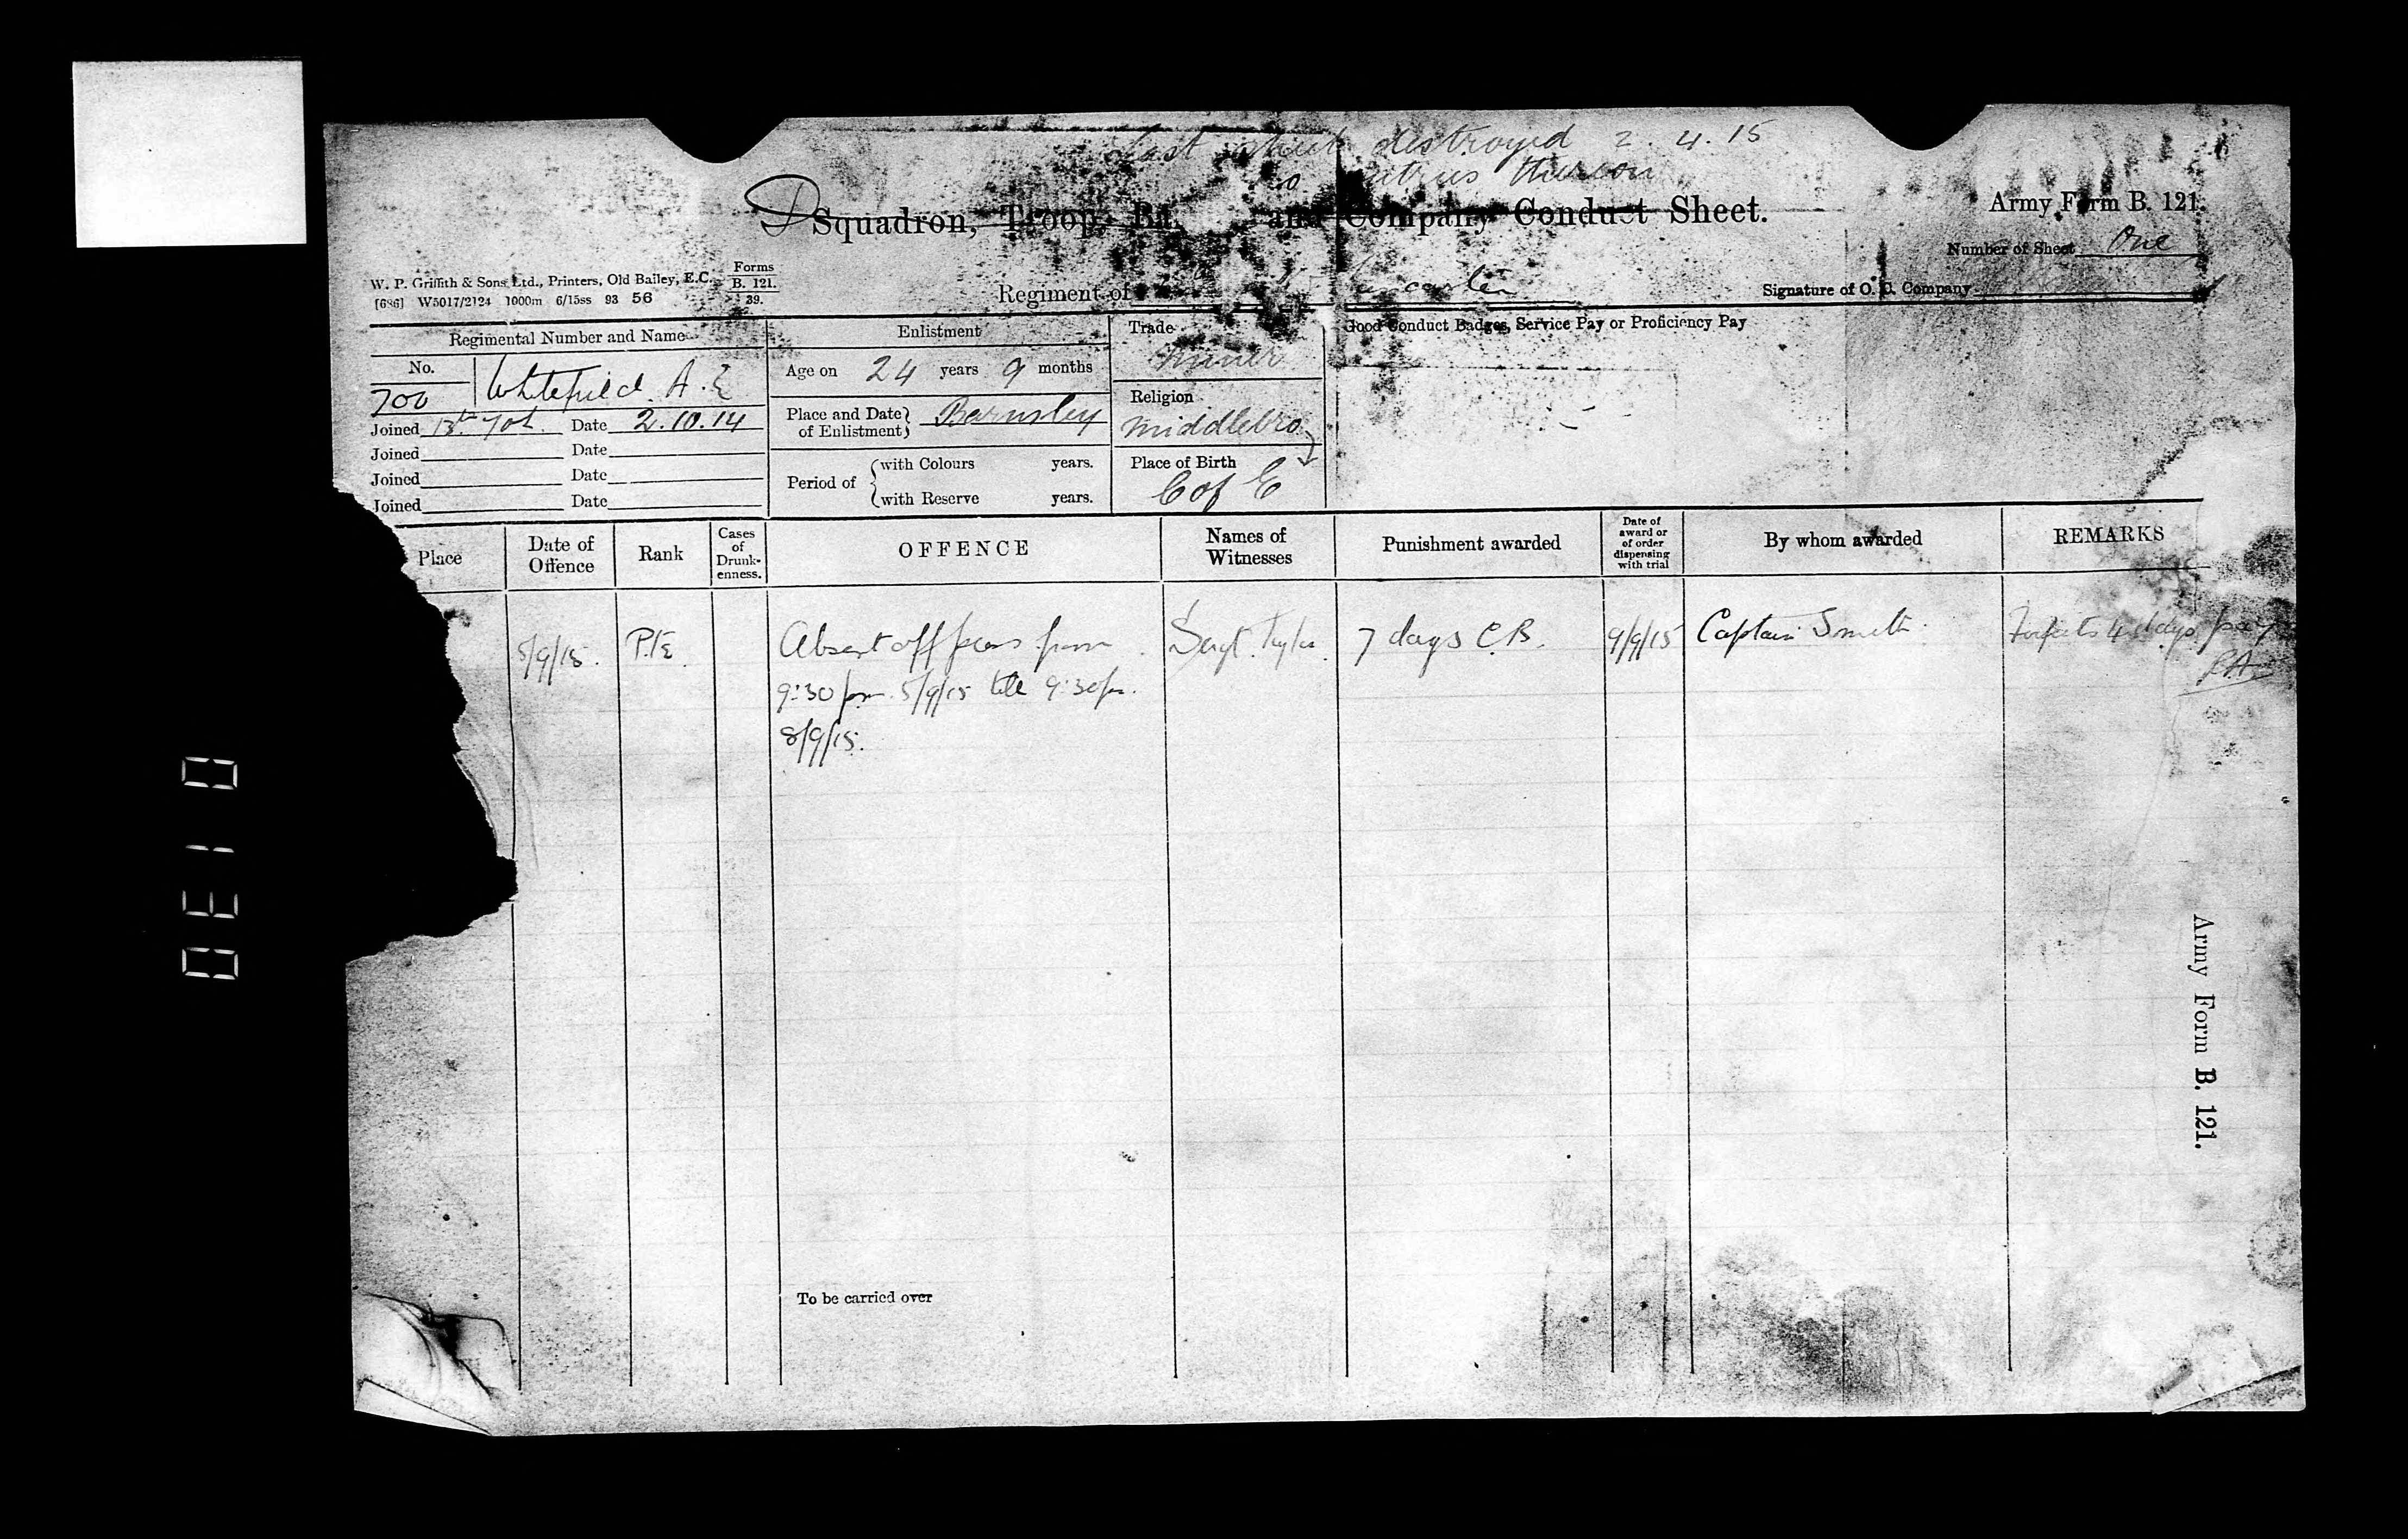 Last sheet destroyed 2.4.15
thereon
D Squadron, Troop, Ba and Company Conduct Sheet.
Army Form B. 121.
Number of Sheet One
W. P. Griffith & Sons, Ltd., Printers, Old Bailey, E.C.
Forms
B. 121.
39.
[686] W5017/2124 1000m 6/15ss 93 56
Regiment of Lancaster
Signature of O. C. Company
Regimental Number and Name
Enlistment
Trade
Good Conduct Badges, Service Pay or Proficiency Pay
No.
700
Whitefield. A. E
Age on 24 years 9 months
Miner
Joined 13th Date 2.10.14
Place and Date of Enlistment Barnsley
Religion
Middlebro
Joined Date
Joined Date
Joined Date
Period of with Colours years.
with Reserve years.
Place of Birth
C of E
Place
Date of Offence
Rank
Cases of Drunk-enness.
OFFENCE
Names of Witnesses
Punishment awarded
Date of award or of order dispensing with trial
By whom awarded
REMARKS
5/9/15. Pte Absent off pass from Sergt. Taylor. 7 days C.B. 9/9/15 Captain Smith. Forfeits 4 days pay
9:30 pm. 5/9/15 till 9:30pm.
8/9/15.
To be carried over
Army Form B. 121.
0 1 3 0